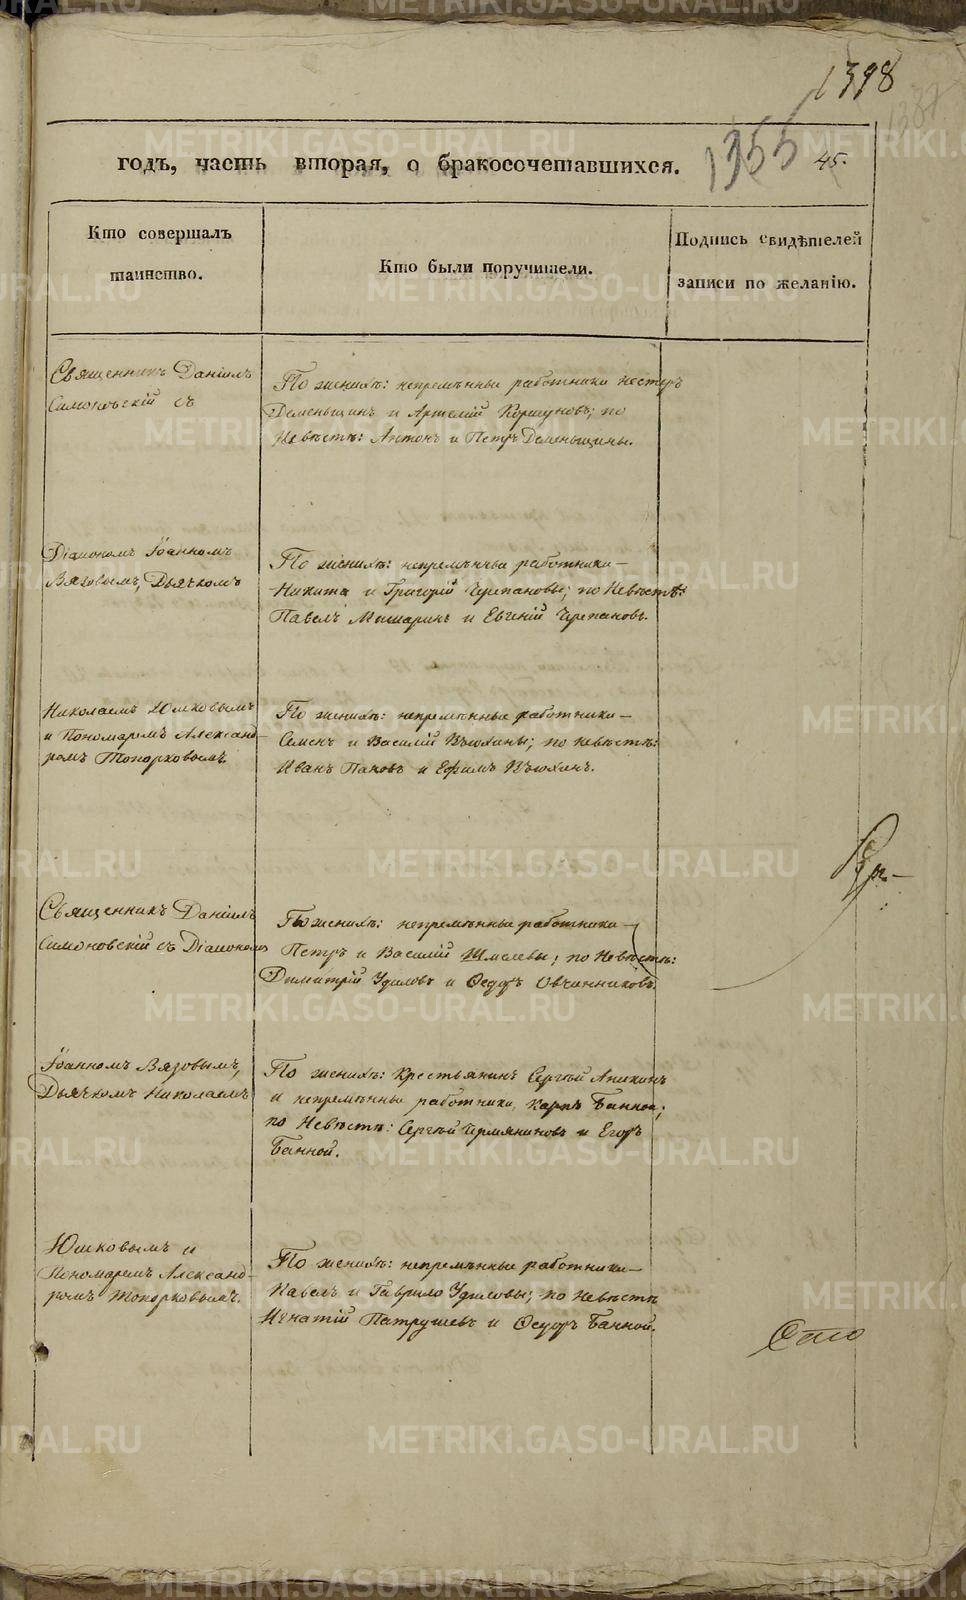 1398
1355 45.
годъ, часть вторая, о бракосочетавшихся.
Кто совершалъ
таинство.
Кто были поручители.
Подпись свидѣтелей
записи по желанію.
Священникъ Даніилъ
Симоновскій съ
По женихѣ: непремѣнные работники Несторъ
Деменьшинъ и Артемій Коршуновъ; по
Невѣстѣ: Антонъ и Петръ Деменьшины.
Діакономъ Іоанномъ
Вязовымъ, Дьячкомъ
По женихѣ: непремѣнные работники —
Никита и Григорій Черепановы; по Невѣстѣ:
Павелъ Мишаринъ и Евгеній Черепановъ.
Николаемъ Юшковымъ
и Пономаремъ Александ-
ромъ Топорковымъ.
По женихѣ: непремѣнные работники —
Семенъ и Василій Вьюхины; по невѣстѣ:
Иванъ Пановъ и Ефимъ Вьюхинъ.
Священникъ Даніилъ
Симоновскій съ Діакономъ
По женихѣ: непремѣнные работники —
Петръ и Василій Шмелевы; по Невѣстѣ:
Димитрій Удиловъ и Ѳедоръ Овчинниковъ.
Іоанномъ Вязовымъ,
Дьячкомъ Николаемъ
По женихѣ: Крестьянинъ Сергѣй Аникинъ
и непремѣнные работники, Карпъ Банной;
по Невѣстѣ: Сергѣй Чермяниновъ и Егоръ
Банной.
Юшковымъ и
Пономаремъ Александ-
ромъ Топорковымъ.
По женихѣ: непремѣнные работники —
Павелъ и Гаврило Удиловы; по Невѣстѣ
Игнатій Патрушевъ и Ѳедоръ Банной.
METRIKI.GASO-URAL.RU